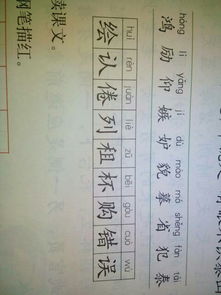 hóng lì yǎng jí dù mào mó shěng fàn tài
鸿 励 仰 嫉 妒 貌 摹 省 犯 泰
huì rèn juàn liè zū bēi gòu cuò wù
绘 认 倦 列 租 杯 购 错 误
课文。
笔描红。